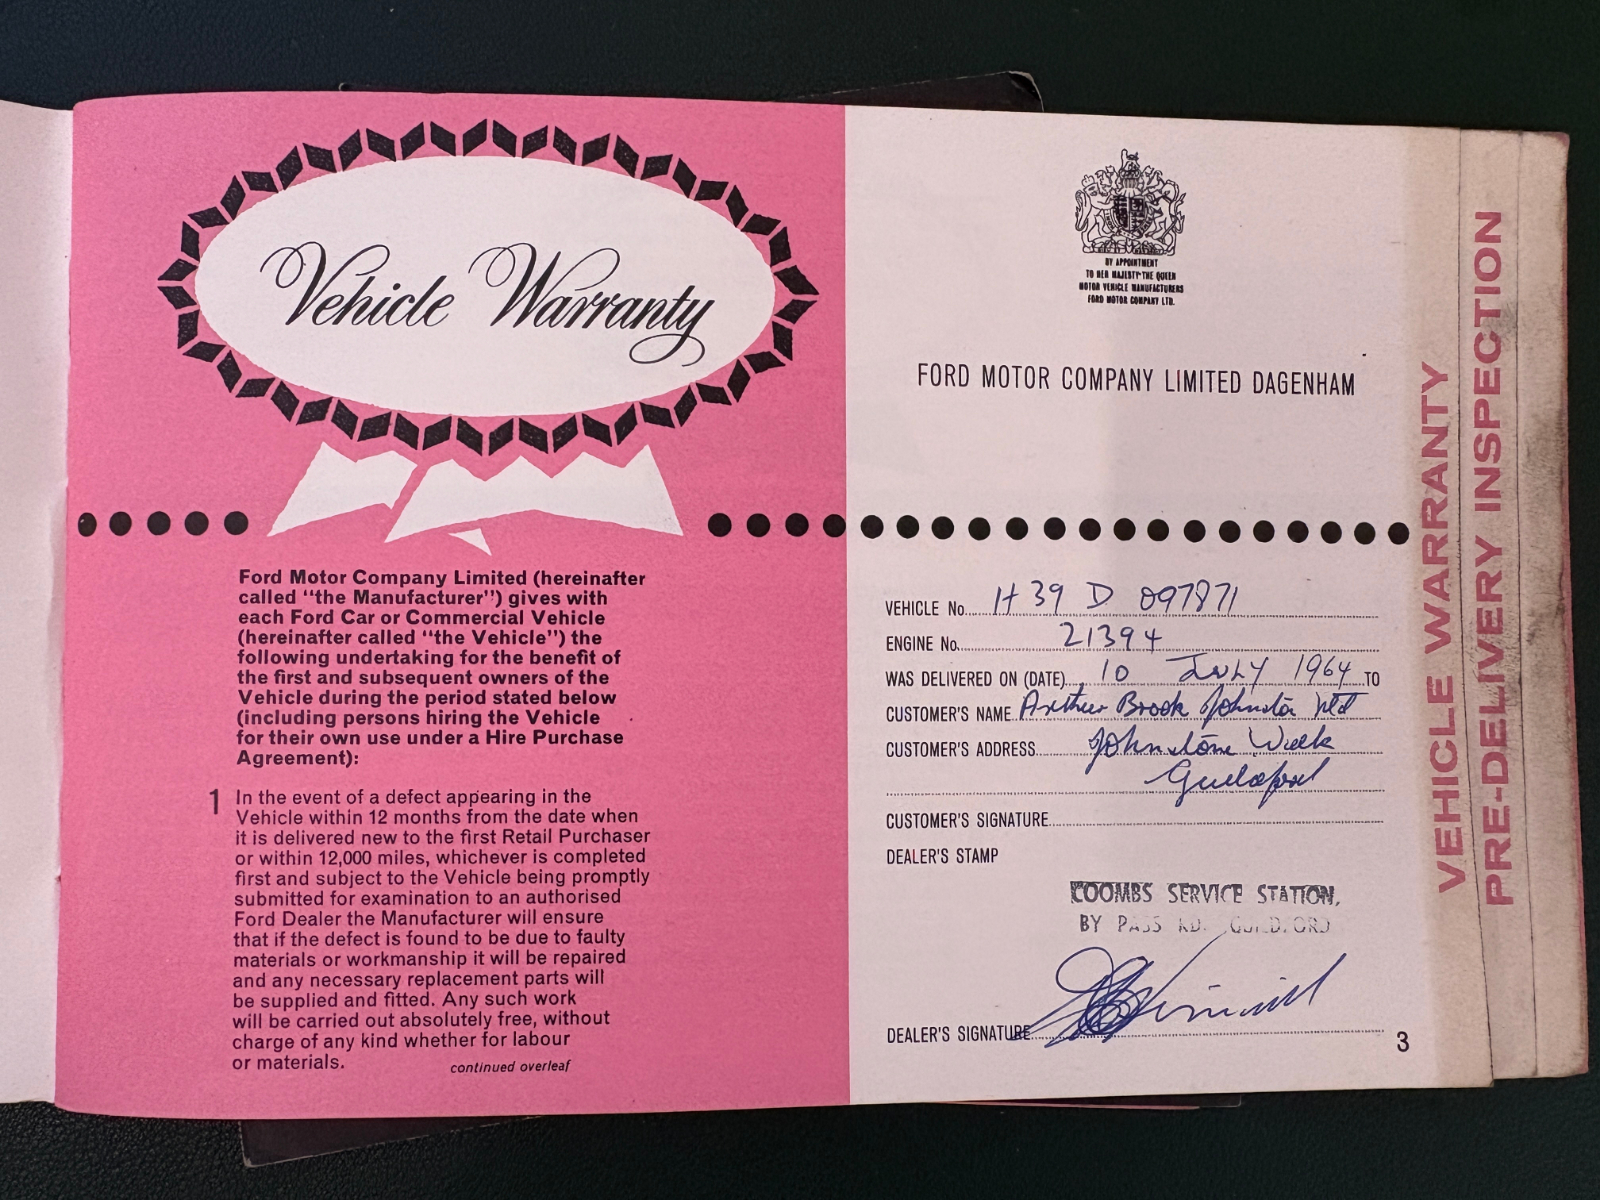 Vehicle Warranty
Ford Motor Company Limited (hereinafter
called "the Manufacturer") gives with
each Ford Car or Commercial Vehicle
(hereinafter called "the Vehicle") the
following undertaking for the benefit of
the first and subsequent owners of the
Vehicle during the period stated below
(including persons hiring the Vehicle
for their own use under a Hire Purchase
Agreement):
1 In the event of a defect appearing in the
Vehicle within 12 months from the date when
it is delivered new to the first Retail Purchaser
or within 12,000 miles, whichever is completed
first and subject to the Vehicle being promptly
submitted for examination to an authorised
Ford Dealer the Manufacturer will ensure
that if the defect is found to be due to faulty
materials or workmanship it will be repaired
and any necessary replacement parts will
be supplied and fitted. Any such work
will be carried out absolutely free, without
charge of any kind whether for labour
or materials.
continued overleaf
BY APPOINTMENT
TO HER MAJESTY THE QUEEN
MOTOR VEHICLE MANUFACTURERS
FORD MOTOR COMPANY LTD.
FORD MOTOR COMPANY LIMITED DAGENHAM
VEHICLE No. H 39 D 097871
ENGINE No. 21394
WAS DELIVERED ON (DATE) 10 JULY 1964 TO
CUSTOMER'S NAME Arthur Brook Johnston
CUSTOMER'S ADDRESS Johnstone Walk
Guildford
CUSTOMER'S SIGNATURE
DEALER'S STAMP
COOMBS SERVICE STATION,
BY PASS RD. GUILDFORD
DEALER'S SIGNATURE
3
VEHICLE WARRANTY
PRE-DELIVERY INSPECTION